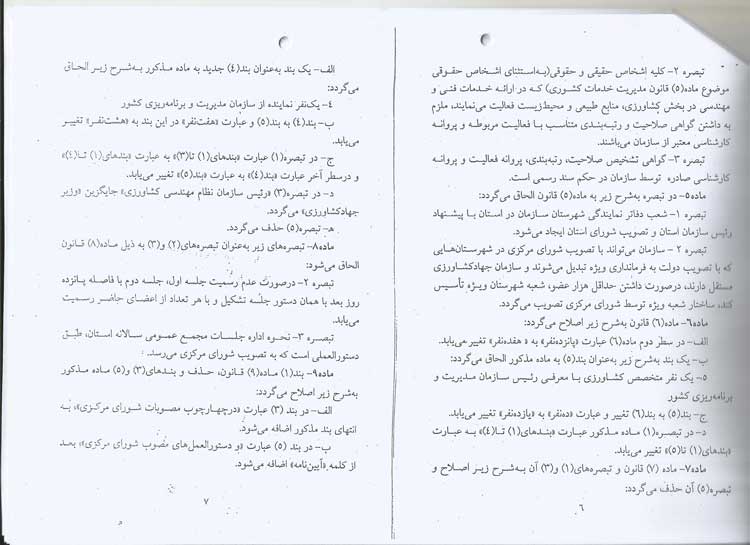 تبصره ۲- کلیه اشخاص حقیقی و حقوقی(به‌استثنای اشخاص حقوقی
موضوع ماده(۵) قانون مدیریت خدمات کشوری) که در ارائه خدمات فنی و
مهندسی در بخش کشاورزی، منابع طبیعی و محیط‌زیست فعالیت می‌نمایند، ملزم
به داشتن گواهی صلاحیت و رتبه‌بندی متناسب با فعالیت مربوطه و پروانه
کارشناسی معتبر از سازمان می‌باشند.
تبصره ۳- گواهی تشخیص صلاحیت، رتبه‌بندی، پروانه فعالیت و پروانه
کارشناسی صادره توسط سازمان در حکم سند رسمی است.
ماده۵- دو تبصره به‌شرح زیر به ماده(۵) قانون الحاق می‌گردد:
تبصره ۱- شعب دفاتر نمایندگی شهرستان سازمان در استان با پیشنهاد
رئیس سازمان استان و تصویب شورای استان ایجاد می‌شود.
تبصره ۲ - سازمان می‌تواند با تصویب شورای مرکزی در شهرستان‌هایی
که با تصویب دولت به فرمانداری ویژه تبدیل می‌شوند و سازمان جهادکشاورزی
مستقل دارند، درصورت داشتن حداقل هزار عضو، شعبه شهرستان ویژه تأسیس
کند، ساختار شعبه ویژه توسط شورای مرکزی تصویب می‌گردد.
ماده۶- ماده(۶) قانون به‌شرح زیر اصلاح می‌گردد:
الف- در سطر دوم ماده(۶) عبارت «پانزده‌نفر» به « هفده‌نفر» تغییر می‌یابد.
ب- یک بند به‌شرح زیر به‌عنوان بند(۵) به ماده مذکور الحاق می‌گردد:
۵- یک نفر متخصص کشاورزی با معرفی رئیس سازمان مدیریت و
برنامه‌ریزی کشور
ج- بند(۵) به بند(۶) تغییر و عبارت «ده‌نفر» به «یازده‌نفر» تغییر می‌یابد.
د- در تبصره(۱) ماده مذکور عبارت «بندهای(۱) تا(۴)» به عبارت
«بندهای(۱) تا(۵)» تغییر می‌یابد.
ماده۷- ماده (۷) قانون و تبصره‌های(۱) و(۳) آن به‌شرح زیر اصلاح و
تبصره(۵) آن حذف می‌گردد:
۶
الف- یک بند به‌عنوان بند(۴) جدید به ماده مذکور به‌شرح زیر الحاق
می‌گردد:
۴- یک‌نفر نماینده از سازمان مدیریت و برنامه‌ریزی کشور
ب- بند(۴) به بند(۵) و عبارت «هفت‌نفر» در این بند به «هشت‌نفر» تغییر
می‌یابد.
ج- در تبصره(۱) عبارت «بندهای(۱) تا(۳)» به عبارت «بندهای(۱) تا(۴)»
و درسطر آخر عبارت «بند(۴)» به عبارت «بند(۵)» تغییر می‌یابد.
د- در تبصره(۳) «رئیس سازمان نظام مهندسی کشاورزی» جایگزین «وزیر
جهادکشاورزی» می‌گردد.
هـ- تبصره(۵) حذف می‌گردد.
ماده۸- تبصره‌های زیر به‌عنوان تبصره‌های(۲) و(۳) به ذیل ماده(۸) قانون
الحاق می‌شود:
تبصره ۲- درصورت عدم رسمیت جلسه اول، جلسه دوم با فاصله پانزده
روز بعد با همان دستور جلسه تشکیل و با هر تعداد از اعضای حاضر رسمیت
می‌یابد.
تبصره ۳- نحوه اداره جلسات مجمع عمومی سالانه استان، طبق
دستورالعملی است که به تصویب شورای مرکزی می‌رسد.
ماده۹- بند(۱) ماده(۹) قانون، حذف و بندهای(۳) و(۵) ماده مذکور
به‌شرح زیر اصلاح می‌گردد:
الف- در بند (۳) عبارت «درچهارچوب مصوبات شورای مرکزی»، به
انتهای بند مذکور اضافه می‌شود.
ب- در بند (۵) عبارت «و دستورالعمل‌های مصوب شورای مرکزی»، بعد
از کلمه «آیین‌نامه» اضافه می‌شود.
۷